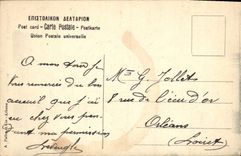 ΕΠΙΣΤΟΛΙΚΟΝ ΔΕΛΤΑΡΙΟΝ
Post card - Carte Postale - Postkarte
Union Postale universelle
A mon tour je
vous remercie du bon
accueil que j'ai
eu chez vous pen
dant ma permission
Mr G. Jollet
8 rue de l'écu d'or
Orléans
Loiret